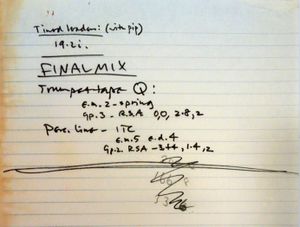 Timed leader: (with pip)
19.2i.
FINAL MIX
Trumpet tape Q:
e.m. 2 - spring
Gp. 3 - RSA 0,0, 2.8, 2
Perc. line - ITC
e.m. 5 e.d. 4
Gp. 2 RSA - 3++, 1.4, 2